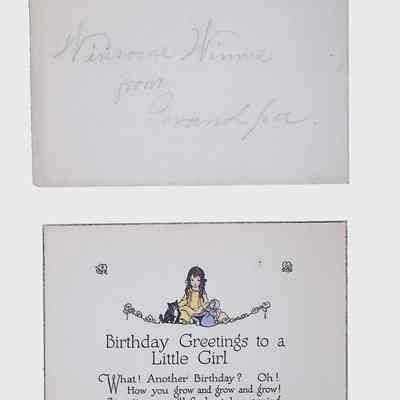 Winsome Winnie
from
Grandpa.
Birthday Greetings to a
Little Girl
What! Another Birthday? Oh!
How you grow and grow and grow!